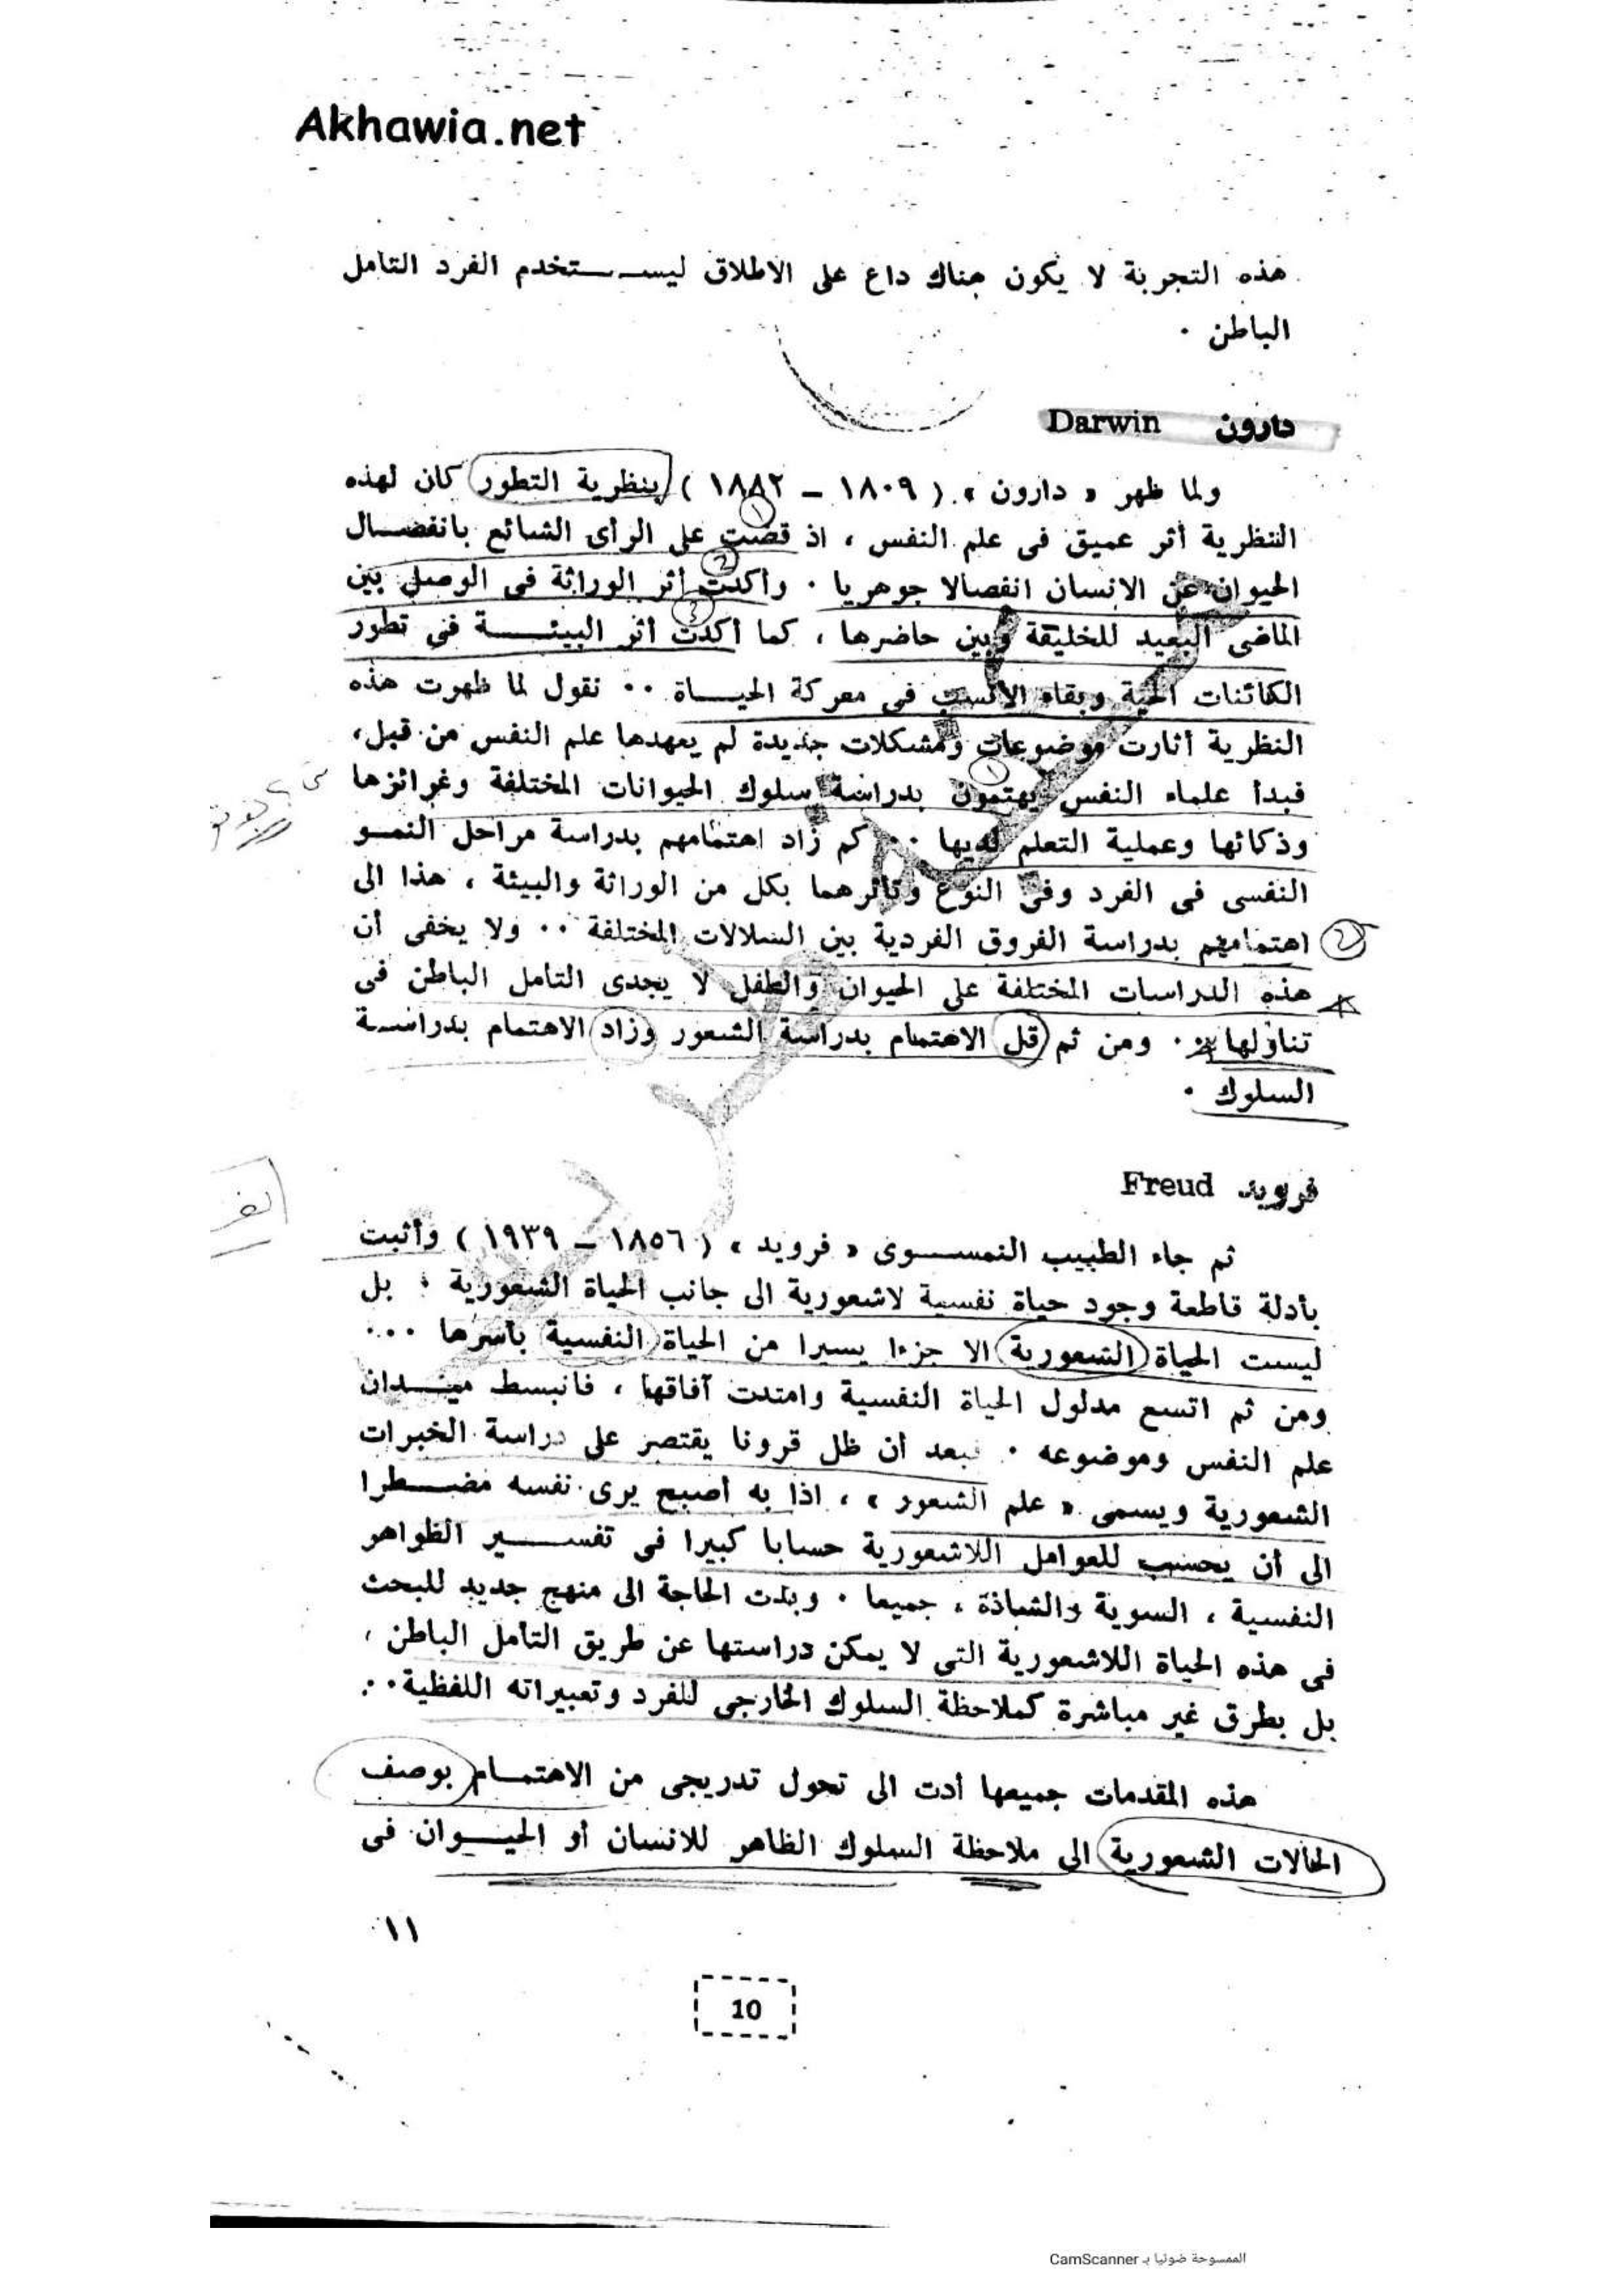 Akhawia.net
هذه التجربة لا يكون هناك داع على الاطلاق ليســـتخدم الفرد التامل
الباطن ٠
دارون Darwin
ولما ظهر « دارون » ( ١٨٠٩ – ١٨٨٢ ) بنظرية التطور كان لهذه
النظرية أثر عميق فى علم النفس ، اذ قضت على الرأى الشائع بانفصـال
الحيوان عن الانسان انفصالا جوهريا ٠ وأكدت أثر الوراثة فى الوصل بين
الماضى البعيد للخليقة وبين حاضرها ، كما أكدت أثر البيئــــة فى تطور
الكائنات الحية وبقاء الأنسب فى معركة الحيـــاة ٠٠ نقول لما ظهرت هذه
النظرية أثارت موضوعات ومشكلات جديدة لم يعهدها علم النفس من قبل،
فبدأ علماء النفس يهتمون بدراسة سلوك الحيوانات المختلفة وغرائزها
وذكائها وعملية التعلم لديها ٠٠ كم زاد اهتمامهم بدراسة مراحل النمـو
النفسى فى الفرد وفى النوع وتأثرهما بكل من الوراثة والبيئة ، هذا الى
اهتمامهم بدراسة الفروق الفردية بين السلالات المختلفة ٠٠ ولا يخفى أن
هذه الدراسات المختلفة على الحيوان والطفل لا يجدى التامل الباطن فى
تناولها ٠٠ ومن ثم قل الاهتمام بدراسة الشعور وزاد الاهتمام بدراســة
السلوك ٠
فرويد Freud
ثم جاء الطبيب النمســـوى « فرويد » ( ١٨٥٦ – ١٩٣٩ ) وأثبت
بأدلة قاطعة وجود حياة نفسية لاشعورية الى جانب الحياة الشعورية ؛ بل
ليست الحياة الشعورية الا جزءا يسيرا من الحياة النفسية بأسرها ٠٠٠
ومن ثم اتسع مدلول الحياة النفسية وامتدت آفاقها ، فانبسط ميـــدان
علم النفس وموضوعه ٠ فبعد أن ظل قرونا يقتصر على دراسة الخبرات
الشعورية ويسمى « علم الشعور » ، اذا به أصبح يرى نفسه مضــطرا
الى أن يحسب للعوامل اللاشعورية حسابا كبيرا فى تفســـير الظواهر
النفسية ، السوية والشاذة ، جميعا ٠ وبدت الحاجة الى منهج جديد للبحث
فى هذه الحياة اللاشعورية التى لا يمكن دراستها عن طريق التأمل الباطن ،
بل بطرق غير مباشرة كملاحظة السلوك الخارجى للفرد وتعبيراته اللفظية ٠٠
هذه المقدمات جميعها أدت الى تحول تدريجى من الاهتمــام بوصف
الحالات الشعورية الى ملاحظة السلوك الظاهر للانسان أو الحيـــوان فى
١١
10
الممسوحة ضوئيا بـ CamScanner